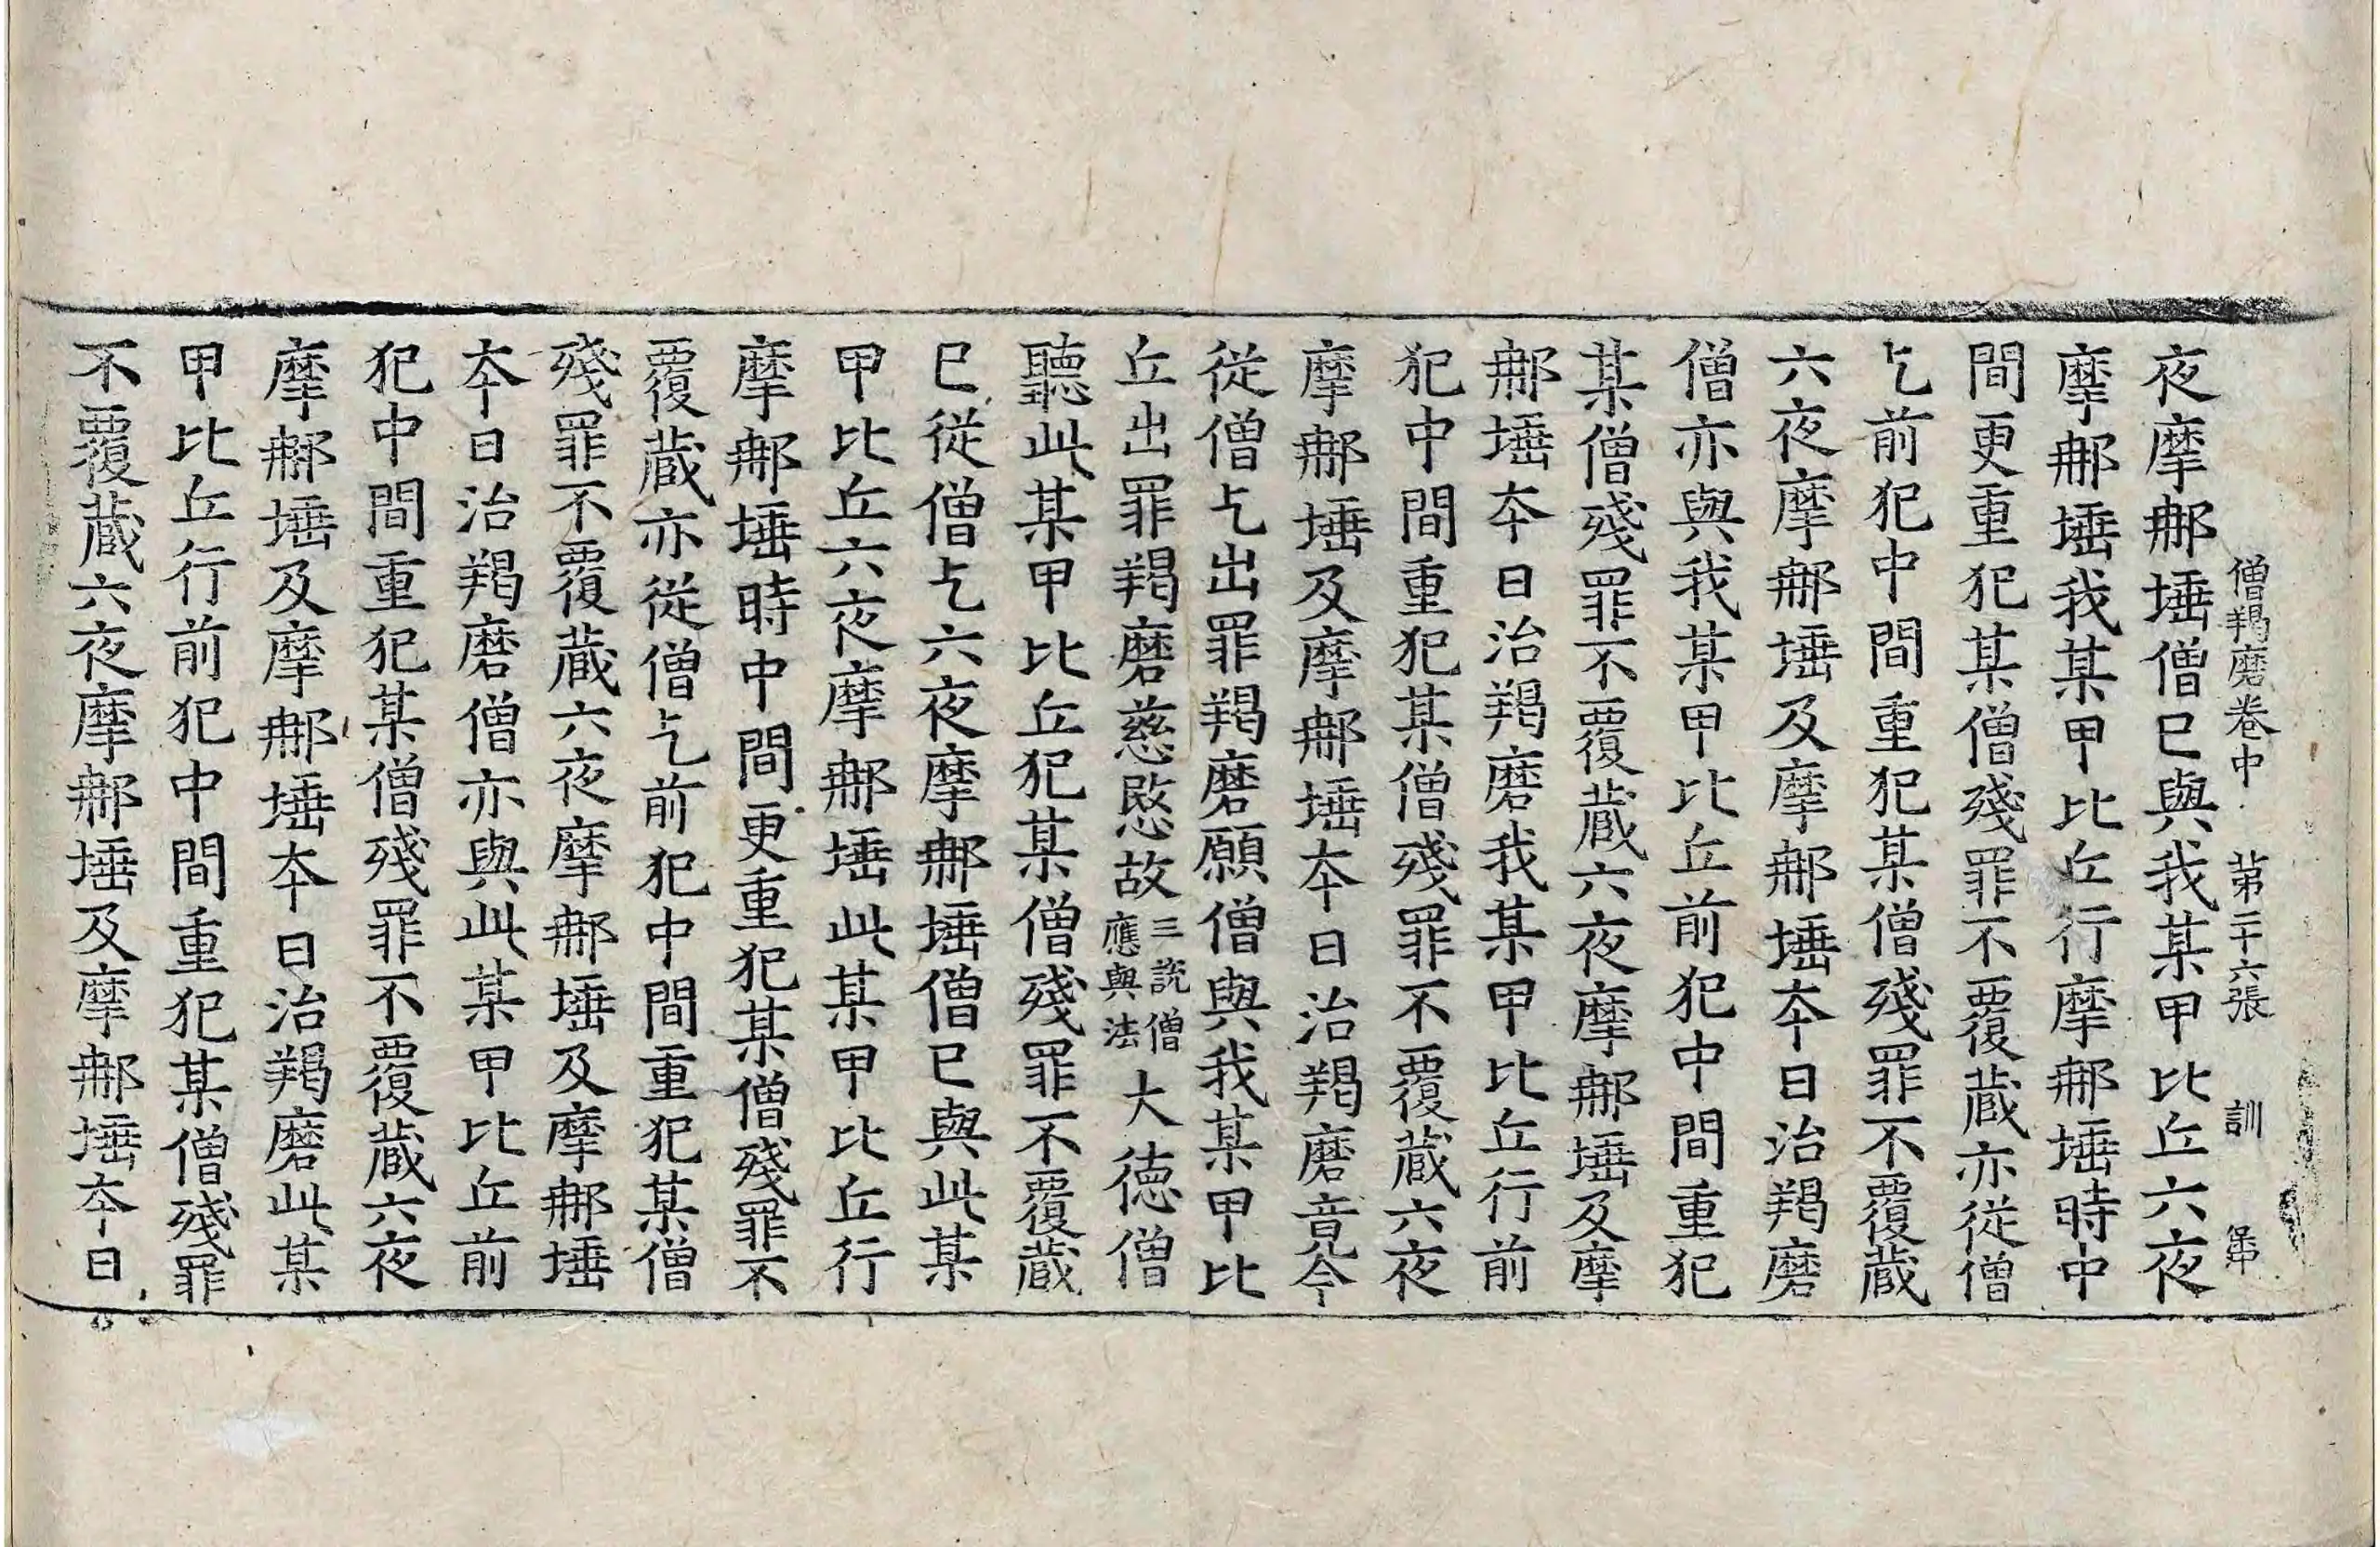 僧羯磨卷中 第二十六張 訓
夜摩那埵僧已與我某甲比丘六夜
摩那埵我某甲比丘行摩那埵時中
間更重犯某僧殘罪不覆蔵亦從僧
乞前犯中間重犯某僧殘罪不覆蔵
六夜摩那埵及摩那埵夲日治羯磨
僧亦與我某甲比丘前犯中間重犯
某僧殘罪不覆蔵六夜摩那埵及摩
那埵夲日治羯磨我某甲比丘行前
犯中間重犯某僧殘罪不覆蔵六夜
摩那埵及摩那埵夲日治羯磨竟今
從僧乞出罪羯磨願僧與我某甲比
丘出罪羯磨慈愍故三說僧應與法大徳僧
聽此某甲比丘犯某僧殘罪不覆蔵
已從僧乞六夜摩那埵僧已與此某
甲比丘六夜摩那埵此某甲比丘行
摩那埵時中間更重犯某僧殘罪不
覆蔵亦從僧乞前犯中間重犯某僧
殘罪不覆蔵六夜摩那埵及摩那埵
夲日治羯磨僧亦與此某甲比丘前
犯中間重犯某僧殘罪不覆蔵六夜
摩那埵及摩那埵夲日治羯磨此某
甲比丘行前犯中間重犯某僧殘罪
不覆蔵六夜摩那埵及摩那埵夲日